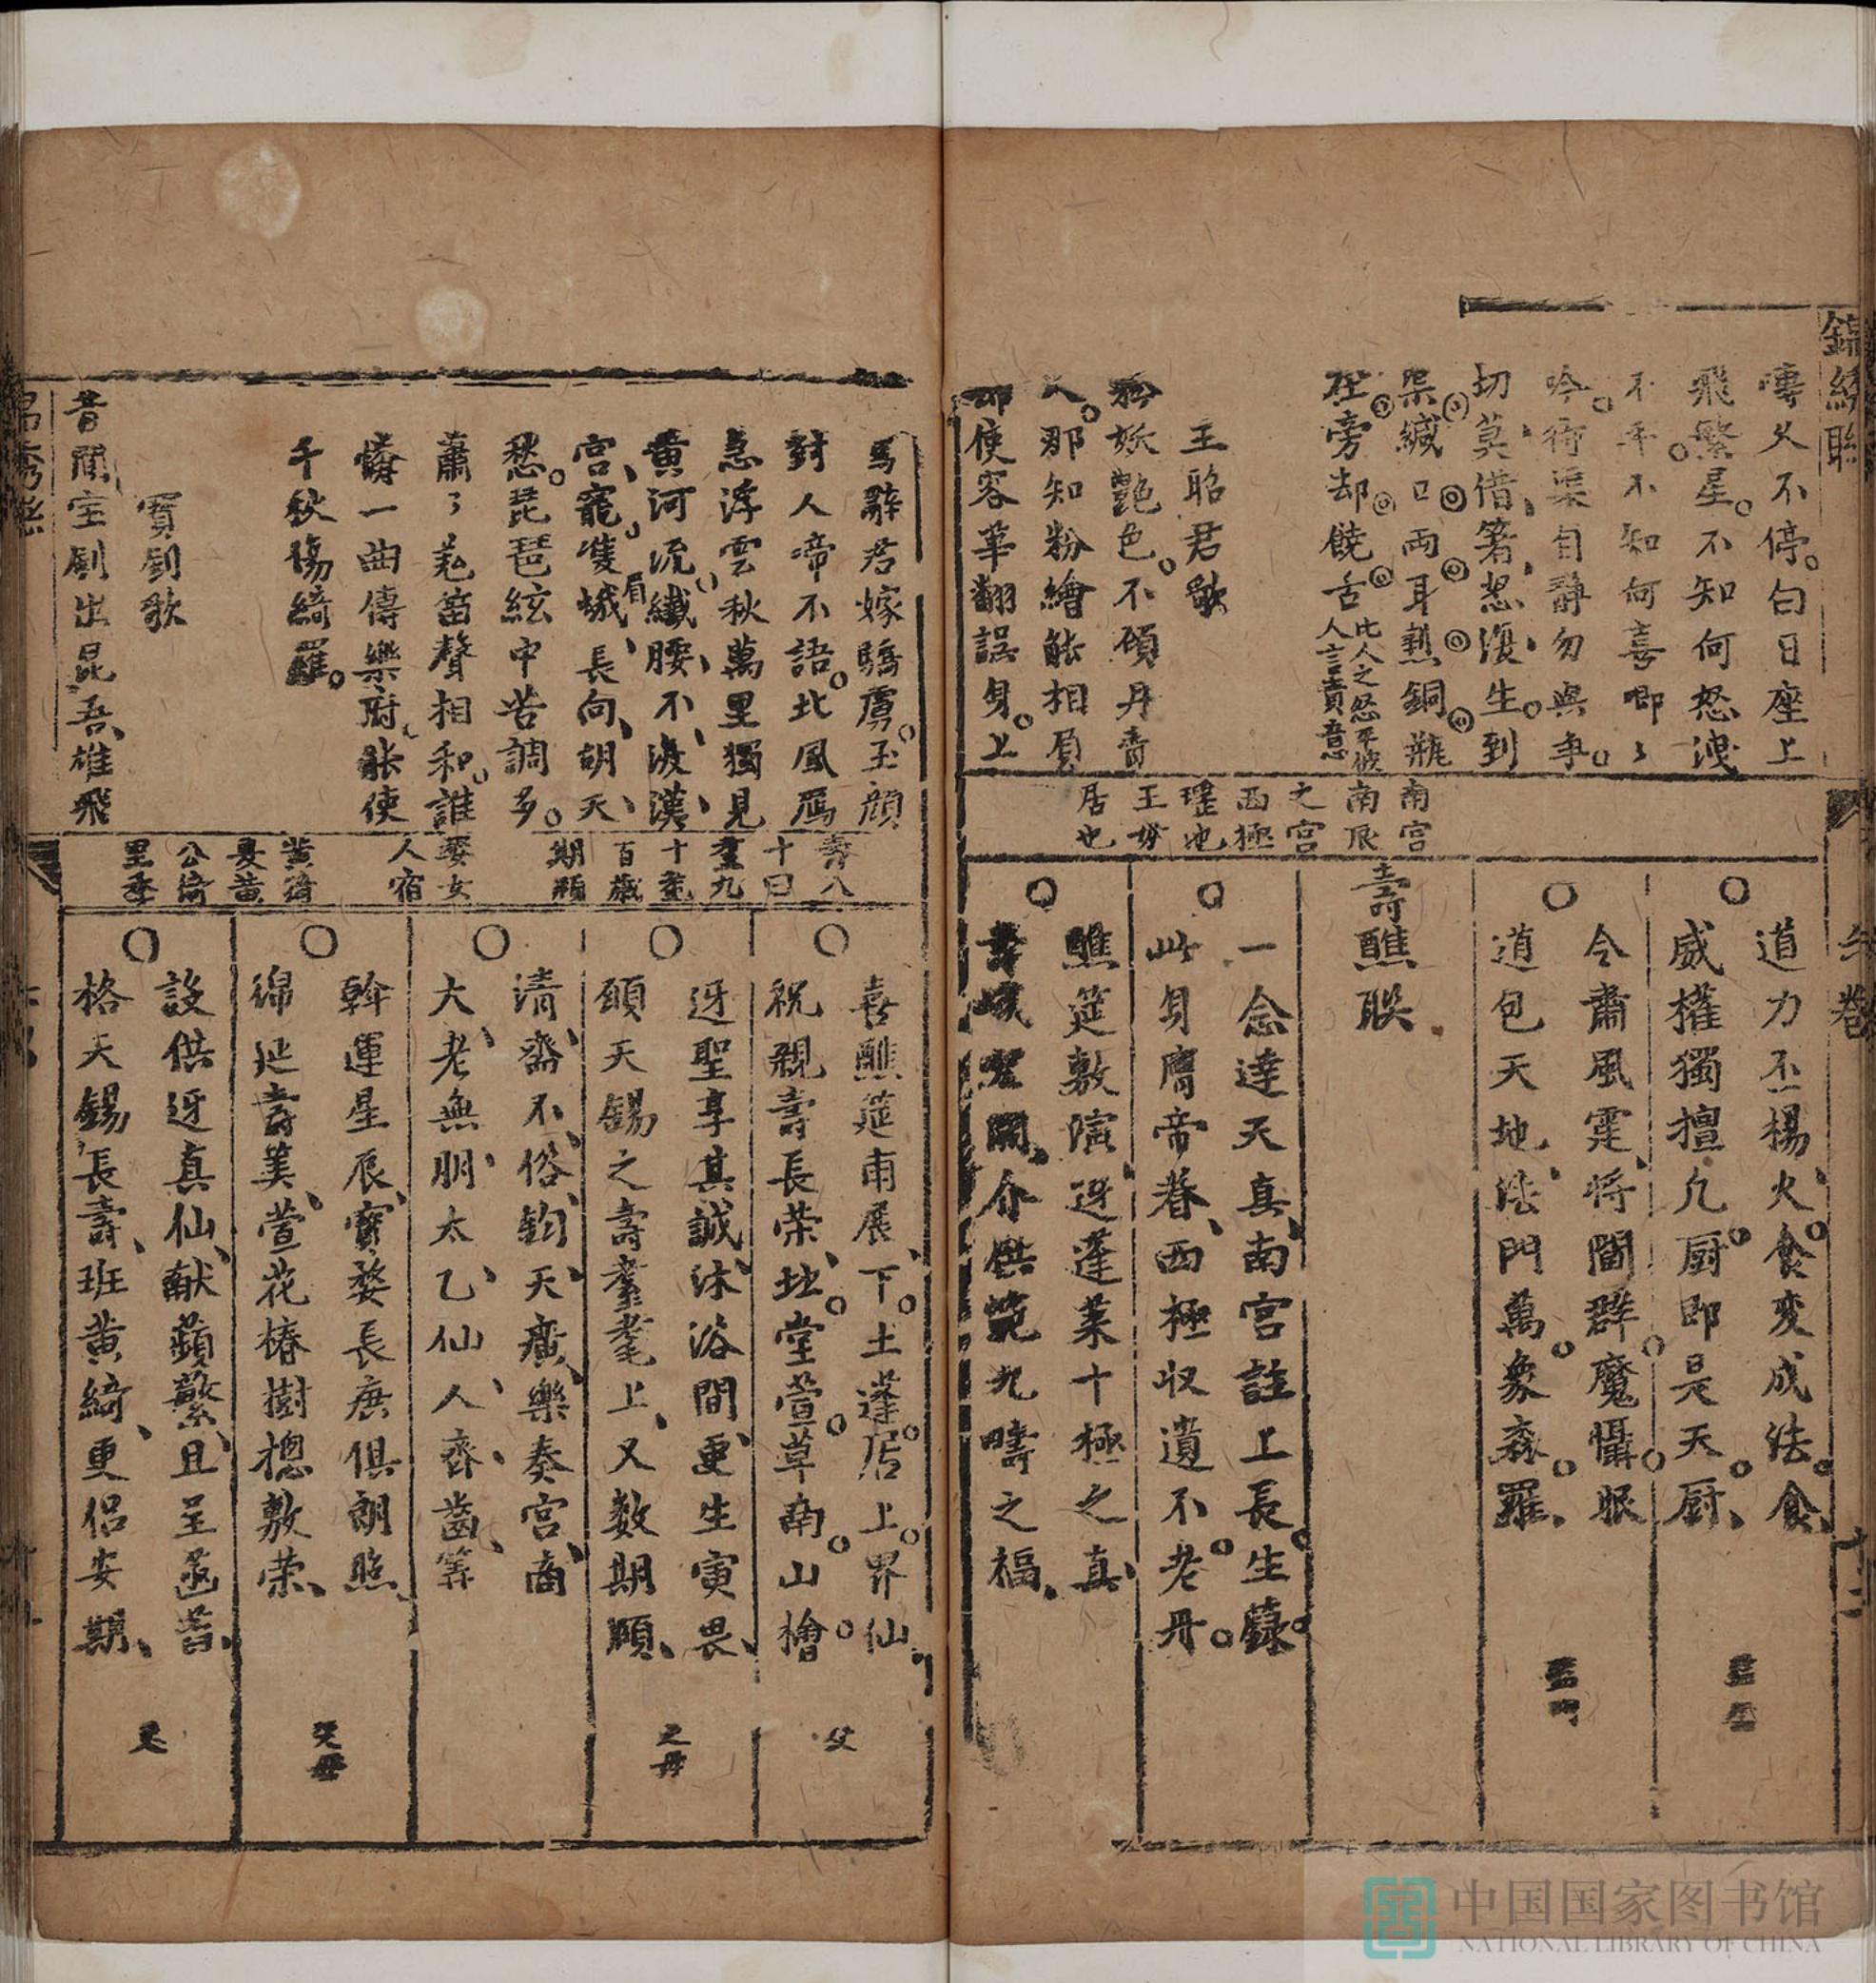 錦綉聯
嘑久不停白日座上
飛繁星不知何怒洩
不平不知何喜唧〻
吟待渠自靜勿與爭
切莫借箸惹渠生到
渠緘口兩耳熱銅瓶
在旁却饒舌
比人之怒平彼
人言責意
王昭君歌
妖艷色不須丹青
人那知粉繪能相負
却使容華翻誤身上
南宮
南辰
之宮
西極
瑤池
王母
居也
道力丕揚火食変成法食
威權獨擅凡厨即是天厨
令肅風霆將閫群魔懾服
道包天地法門萬象森羅
壽醮联
一念達天真南宮註上長生籙
此身膺帝眷西極収遺不老丹
醮筵敷演迓蓬莱十極之真
九疇之福
馬辭君嫁驕虜玉顔
對人啼不語北風鴈
急浮雲秋萬里獨見
黃河流纖腰不渡漢
宮寵隻蛾眉長向胡天
愁琵琶絃中苦調多
蕭〻羌笛聲相和誰
憐一曲傳樂府能使
千秋傷綺羅
寶劍歌
昔聞宝劍出昆吾雄飛
壽八
十曰
耋九
十耄
百歲
期頤
婺女
人宿
黃綺
夏黃
公綺
里季
喜醮筵甫展下土蓬居上界仙
祝親壽長荣北堂萱草南山檜
迓聖享其誠沐浴間更生寅畏
願天錫之壽耋耄上又数期頤
清齋不俗鈞天廣樂奏宮商
大老無朋太乙仙人齊齒筭
斡運星辰寶婺長庚俱朗照
綿延壽美萱花椿樹摠敷荣
設供迓真仙献蘋蘩且呈菡萏
格天錫長壽班黃綺更侶安期
父
父母
中国国家图书馆
NATIONAL LIBRARY OF CHINA